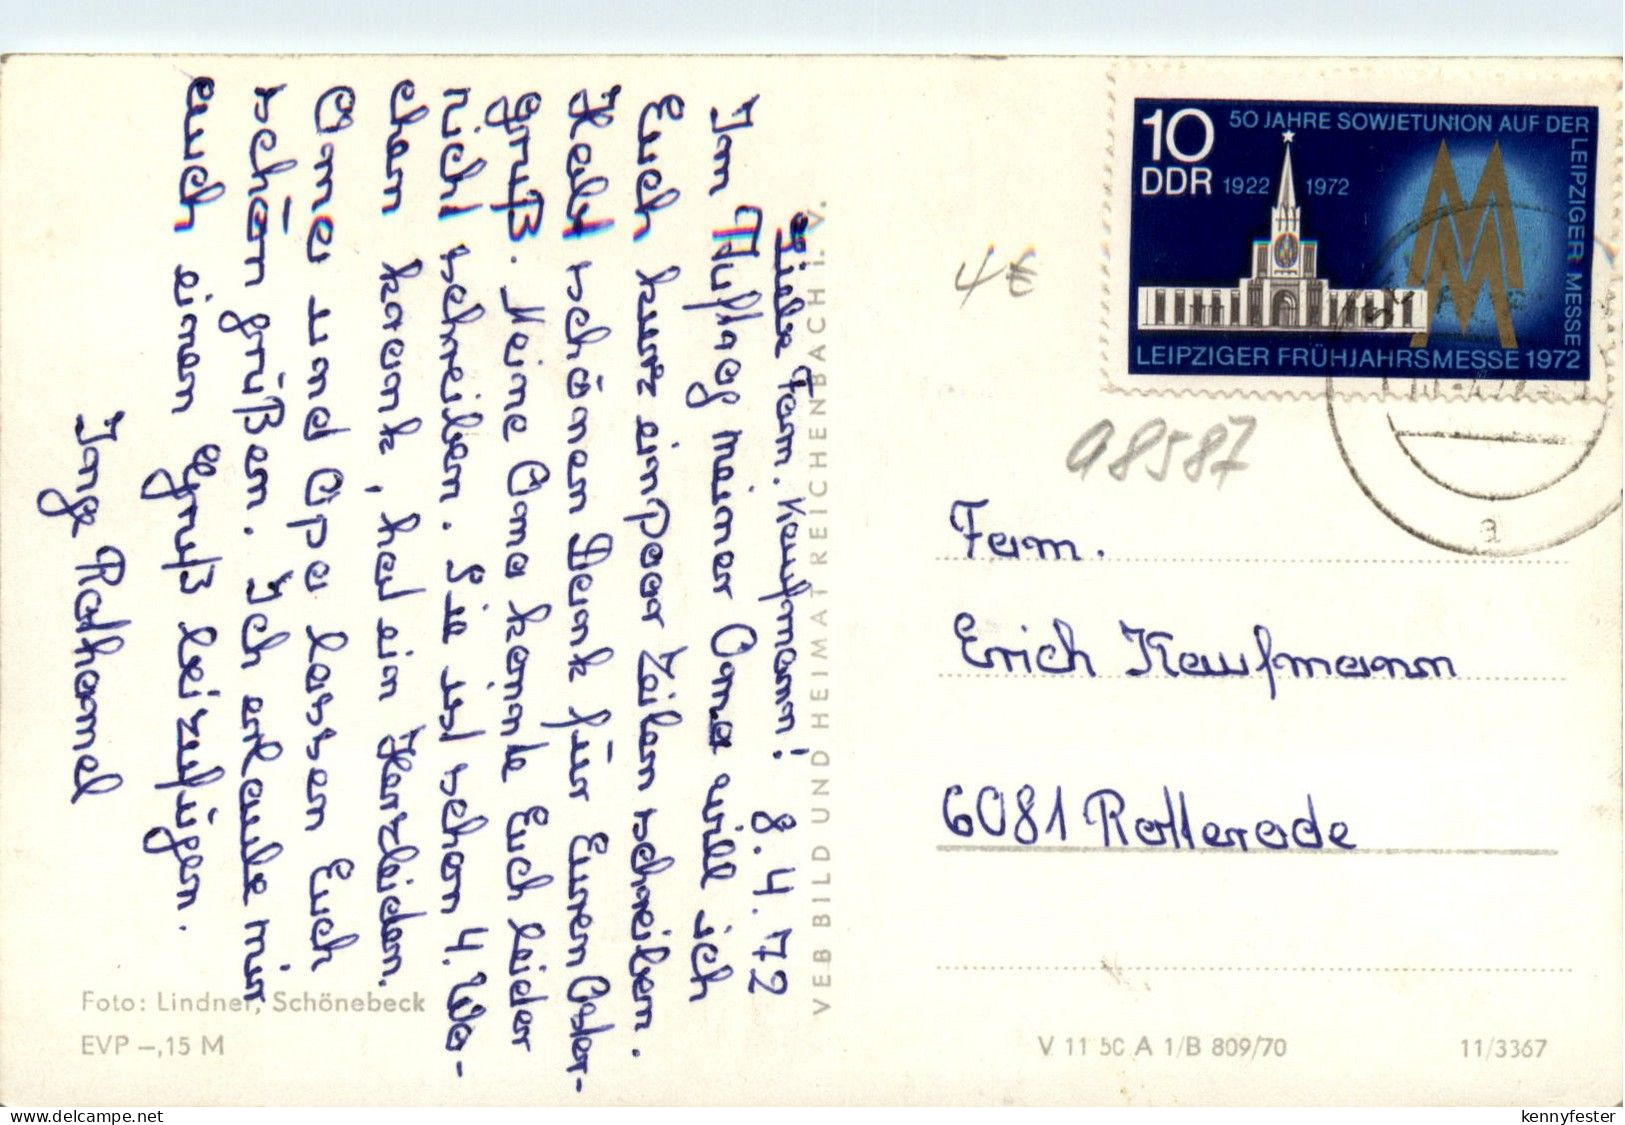 8.4.72
Liebe Fam. Kaufmann!
Im Auftrag meiner Oma will ich
Euch kurz ein paar Zeilen schreiben.
Habt schönen Dank für Euren Oster-
gruß. Meine Oma konnte Euch leider
nicht schreiben. Sie ist schon 4. Wo-
chen krank, hat ein Herzleiden.
Oma und Opa lassen Euch
schön grüßen. Ich erlaube mir
auch einen Gruß beizufügen.
Inge Rothamel
Foto: Lindner, Schönebeck
EVP –,15 M
VEB BILD UND HEIMAT REICHENBACH i. V.
10
DDR
50 JAHRE SOWJETUNION AUF DER LEIPZIGER MESSE
1922 1972
LEIPZIGER FRÜHJAHRSMESSE 1972
a
4 €
A8587
Fam.
Erich Kaufmann
6081 Rotterode
V 11 50 A 1/B 809/70
11/3367
delcampe.net
kennyfester